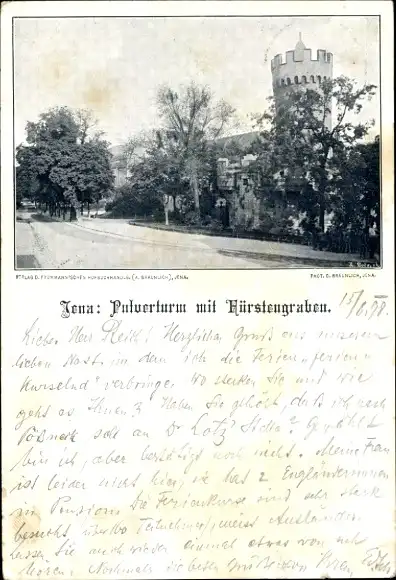 VERLAG D. FROMMANNSCHEN HOFBUCHHANDLG. (A. BRÄUNLICH), JENA.
PHOT. O. BRÄUNLICH, JENA.
Jena: Pulverturm mit Fürstengraben.
15/8.98.
Lieber Herr! Herzlichen Gruß aus unserem
lieben Nest, in dem ich die Ferien „ferien
kurselnd" verbringe. Wo stecken Sie und wie
geht es Ihnen? Haben Sie gehört, daß ich nach
Pößneck soll an Dr Stelle? Gewählt
bin ich, aber bestätigt noch nicht. Meine Frau
ist leider nicht hier, sie hat 2 Engländerinnen
in Pension. Die Ferienkurse sind sehr stark
besucht, Teilnehmer, meist Ausländer.
Lassen Sie auch wieder einmal etwas von sich
hören. Nochmals die besten Grüße von Ihrem